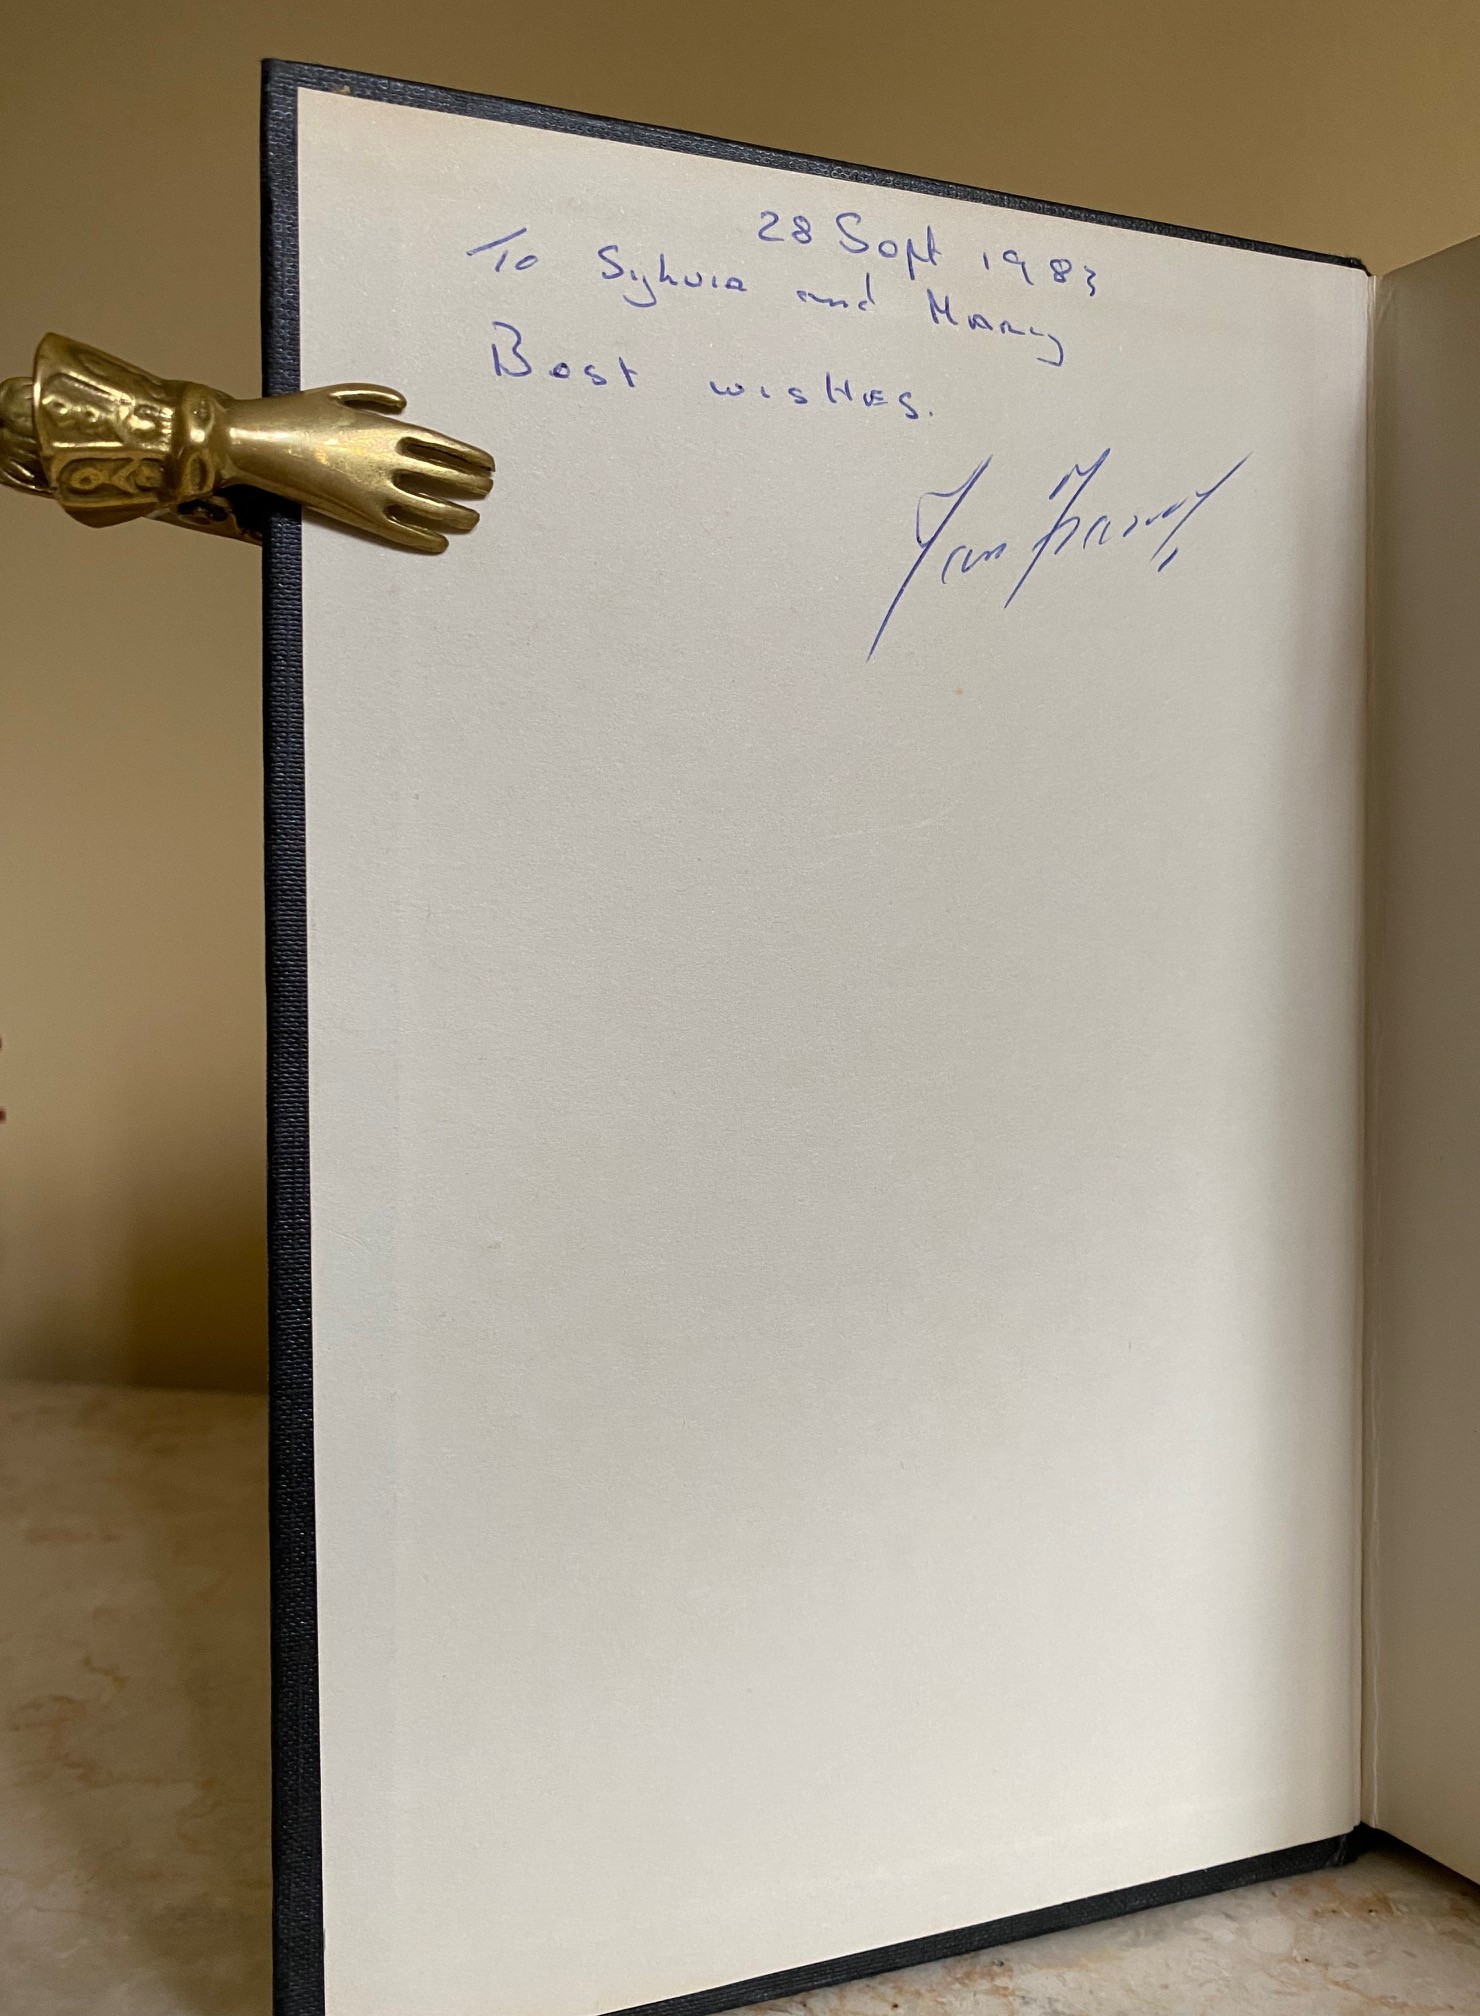 28 Sept 1983
To Sylvia and Mary
Best wishes.